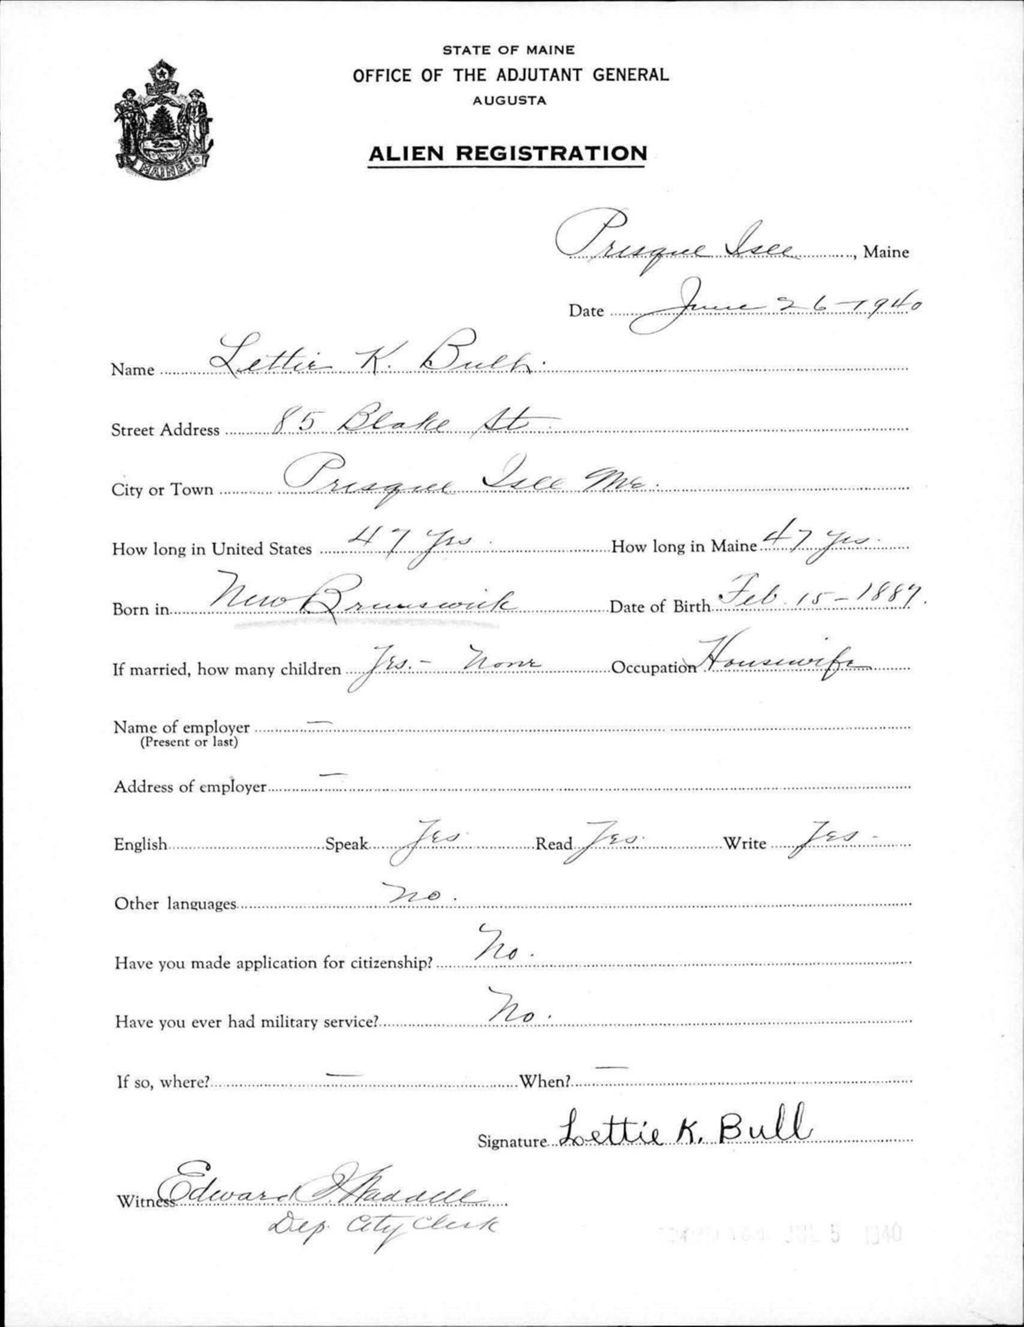 STATE OF MAINE
OFFICE OF THE ADJUTANT GENERAL
AUGUSTA
ALIEN REGISTRATION
MAINE
Presque Isle, Maine
Date June 26-1940
Name Lettie K. Bull.
Street Address 85 Blake St.
City or Town Presque Isle Me.
How long in United States 47 Yrs. How long in Maine 47 Yrs.
Born in New Brunswick Date of Birth Feb. 15-1887.
If married, how many children Yes.- None Occupation Housewife
Name of employer —
(Present or last)
Address of employer —
English Speak Yes Read Yes. Write Yes-
Other languages No.
Have you made application for citizenship? No.
Have you ever had military service? No.
If so, where? — When? —
Signature Lettie K. Bull
Witness Edward J. Waddell
Dep. City Clerk
JUL 5 1940